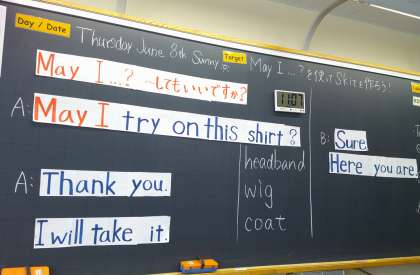 Day / Date
Thursday June 8th Sunny
Target
May I ...? を使ってSkitを作ろう!
May I ...? ～してもいいですか?
11:01
A: May I try on this shirt?
B: Sure.
Here you are.
headband
wig
coat
A: Thank you.
I will take it.